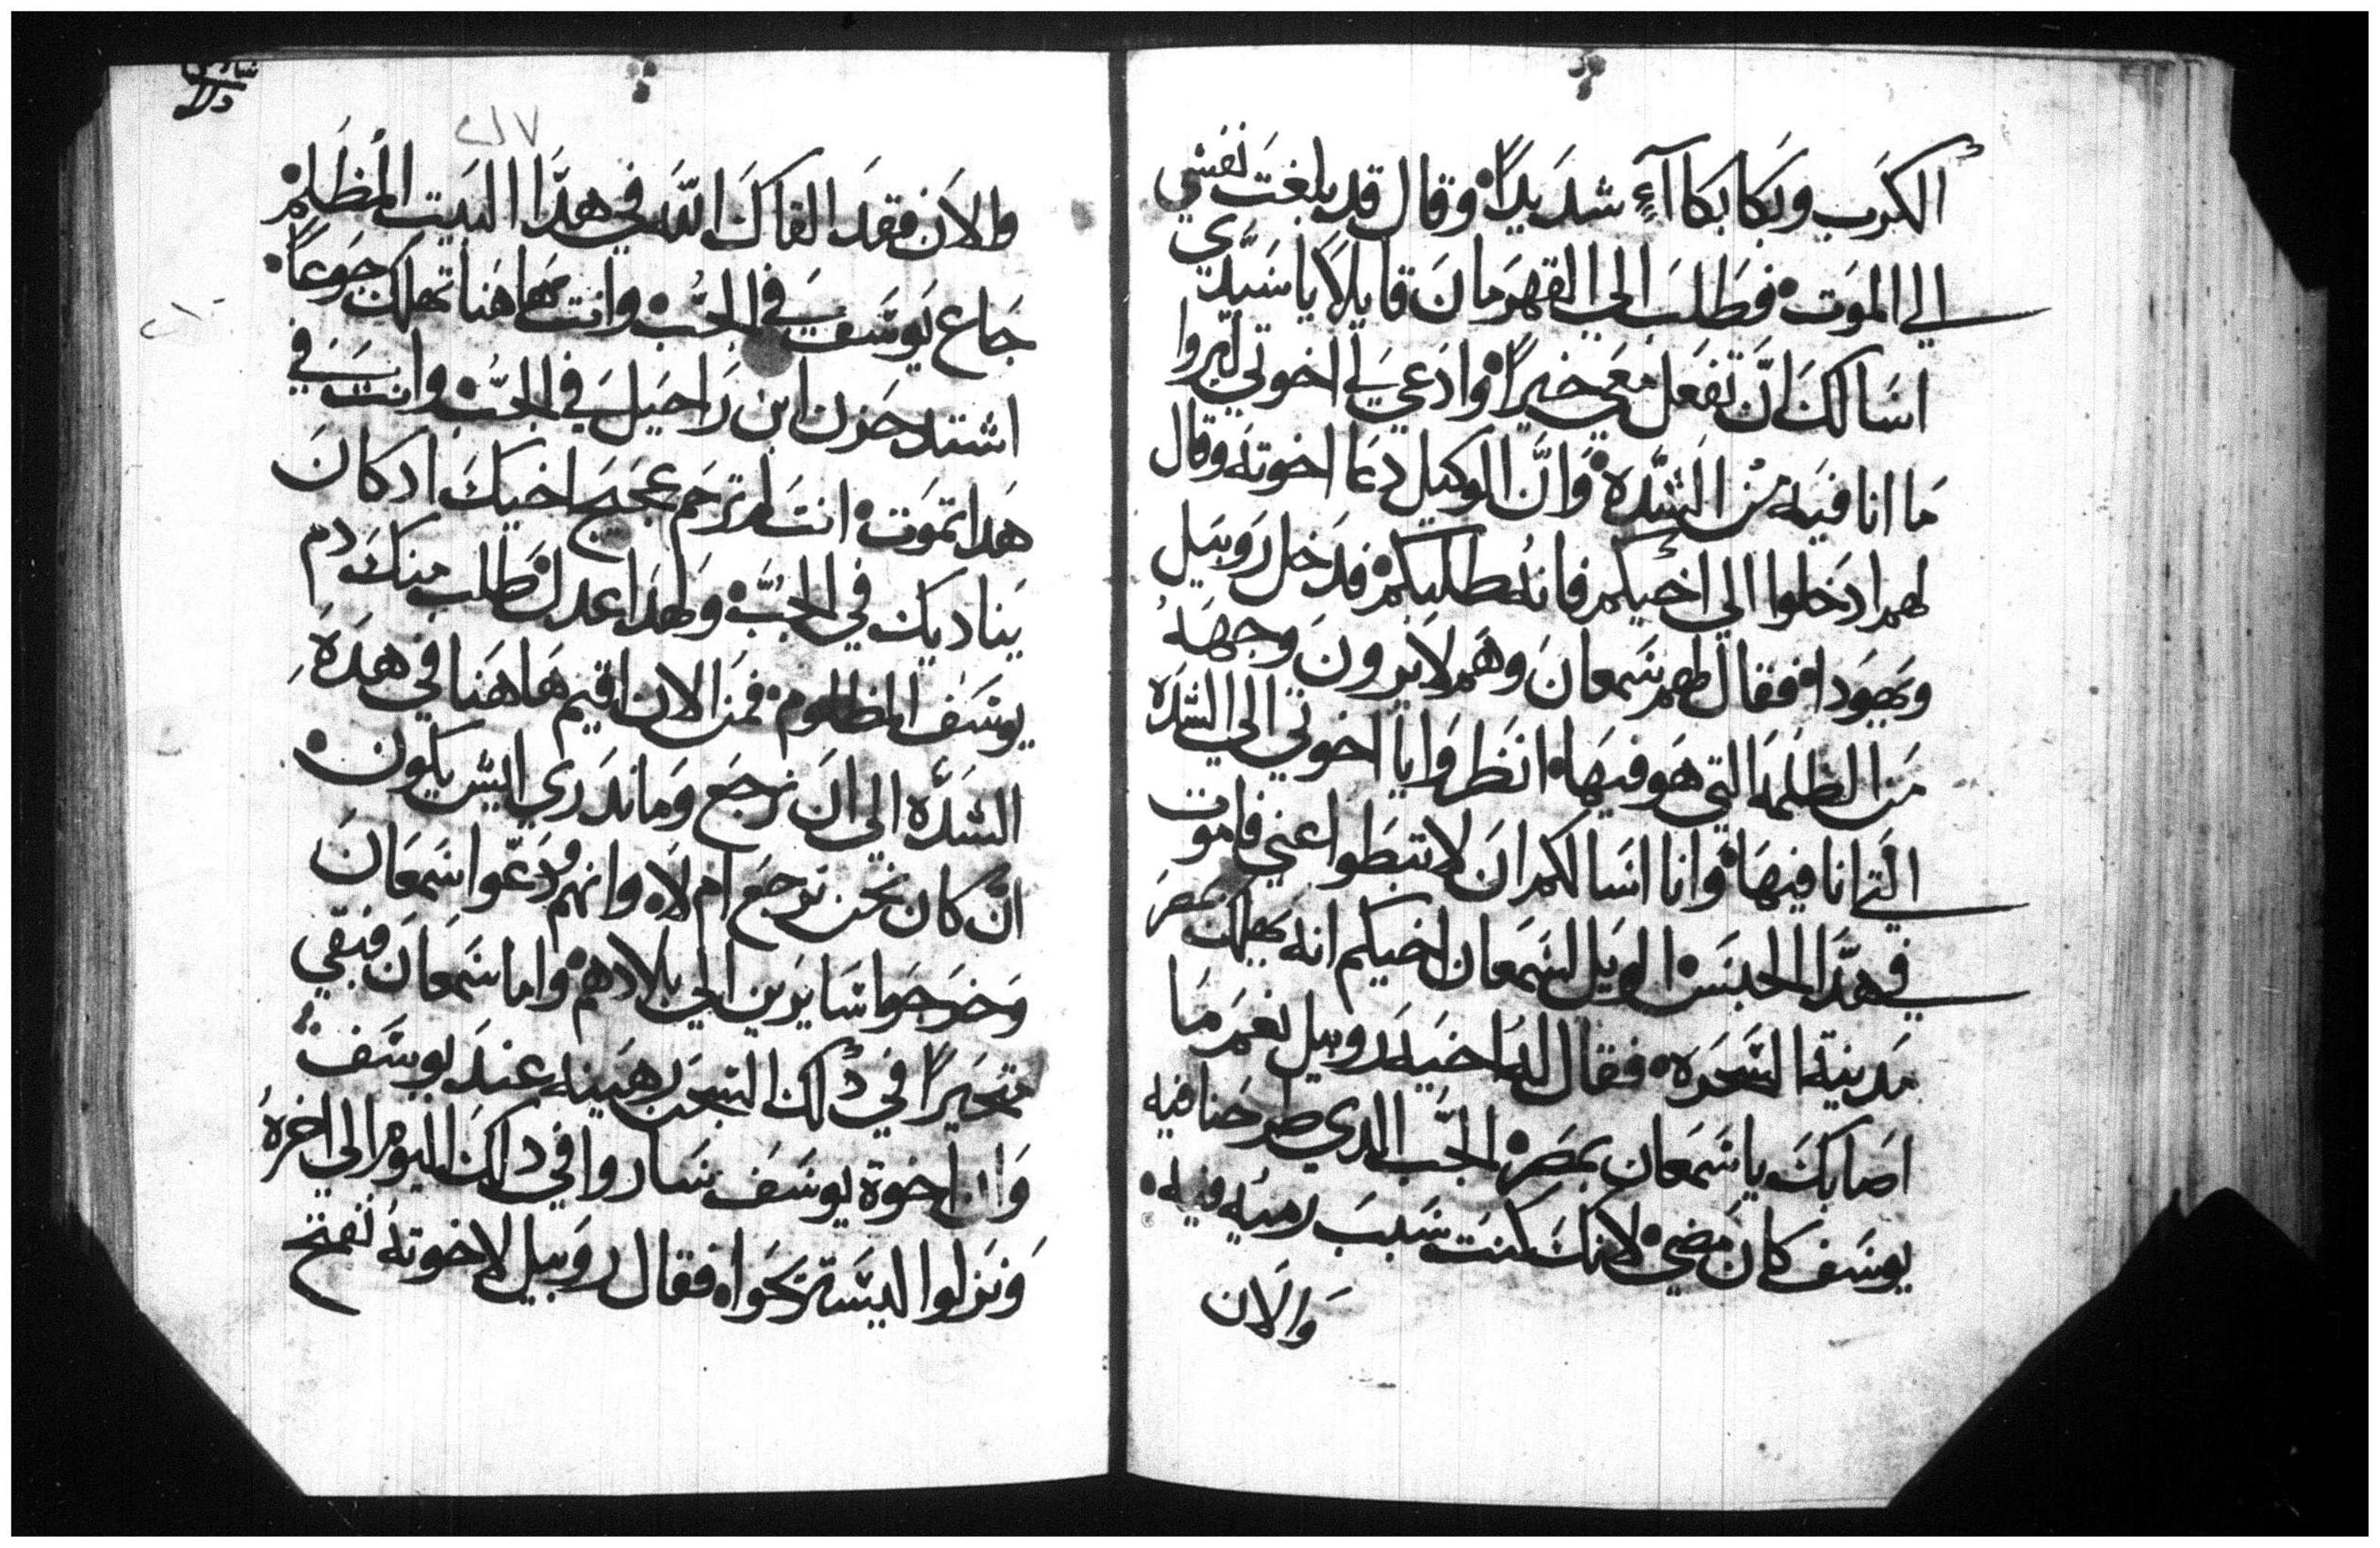 الكرب وبكا بكاآءً شديداً وقال قد بلغت نفسي
الي الموت فطلب الي القهرمان قايلاً يا سيدي
اسالك ان تفعل معي خيراً وادعي لي اخوتي ليروا
ما انا فيه من الشده وان الوكيل دعا اخوته وقال
لهم ادخلوا الي اخيكم فانه طلبكم فدخل روبيل
ويهودا فقال لهم سمعان وهم لا يرون وجهه
من الظلمه التي هو فيها انظروا يا اخوتي الي الشده
التي انا فيها وانا اسالكم ان لا تبطوا عني فاموت
في هدا الحبس الويل لسمعان اخيكم انه يهلك بمصر
مدينة السحره فقال له اخيه روبيل نعم ما
اصابك يا سمعان بمصر الجب الدي طرحنا فيه
يوسف كان مضي لانك كنت سبب رميه فيه
والان
والان فقد القاك الله في هدا البيت المظلم
جاع يوسف في الجب وانت هاهنا تهلك جوعاً
اشتد حزن ابن راحيل في الجب وانت في
هدا تموت انت لم ترحم عجيج اخيك اد كان
يناديك في الجب ولهدا عدل طلب منك دم
يوسف المظلوم فمن الان اقيم هاهنا في هده
الشده الي ان نرجع وما ندري ايش يكون
ان كان نحن نرجع ام لا وانهم ودعوا سمعان
وخرجوا سايرين الي بلادهم واما سمعان فبقي
متحيراً في دلك السجن رهينه عند يوسف
وان اخوة يوسف ساروا في دلك اليوم الي اخره
ونزلوا ليستريحوا فقال روبيل لاخوته نفتح